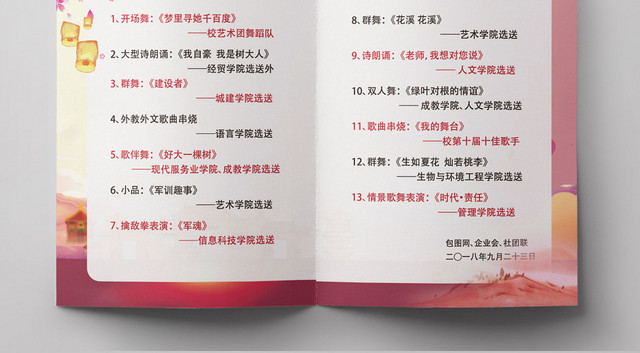 1、开场舞：《梦里寻她千百度》
——校艺术团舞蹈队
2、大型诗朗诵：《我自豪 我是树大人》
——经贸学院选送外
3、群舞：《建设者》
——城建学院选送
4、外教外文歌曲串烧
——语言学院选送
5、歌伴舞：《好大一棵树》
——现代服务业学院、成教学院选送
6、小品：《军训趣事》
——艺术学院选送
7、擒敌拳表演：《军魂》
——信息科技学院选送
8、群舞：《花溪 花溪》
——艺术学院选送
9、诗朗诵：《老师，我想对您说》
—— 人文学院选送
10、双人舞：《绿叶对根的情谊》
—— 成教学院、人文学院选送
11、歌曲串烧：《我的舞台》
——校第十届十佳歌手
12、群舞：《生如夏花 灿若桃李》
——生物与环境工程学院选送
13、情景歌舞表演：《时代·责任》
——管理学院选送
包图网、企业会、社团联
二〇一八年九月二十三日